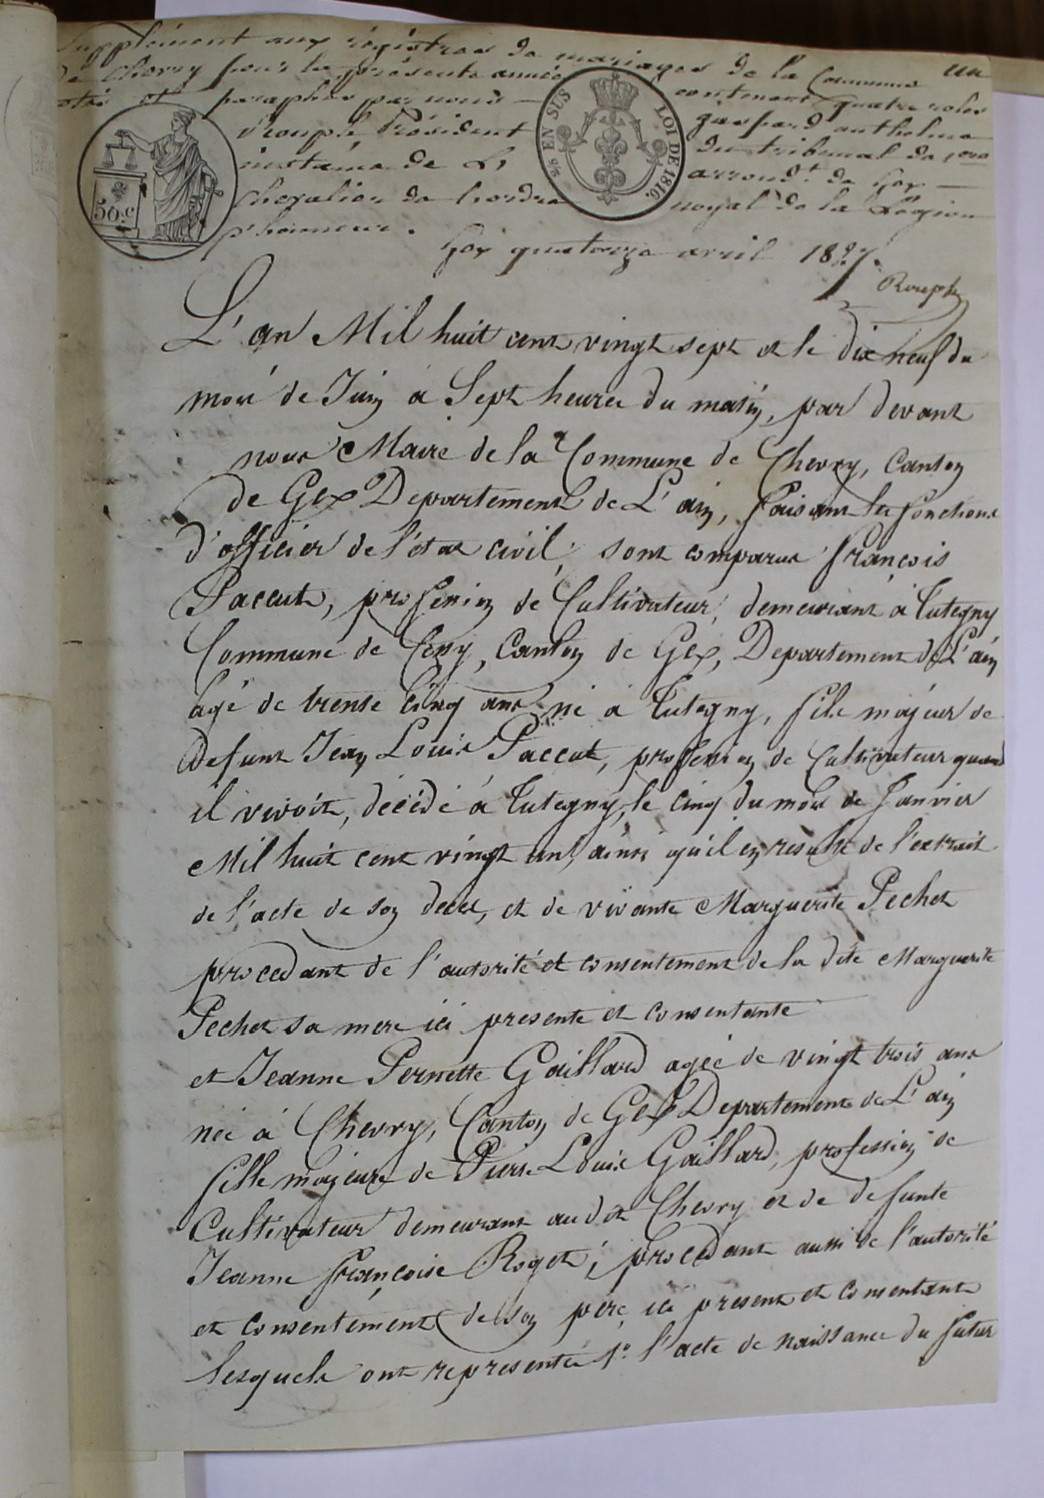 Supplément aux régistres de mariages de la Commune un
de Chevry pour la présente année contenant quatre roles
cotés et paraphés par nous gaspard anthelme
Rouph Président du tribunal de 1ere
instance de L' arrond.t de Gex
Chevalier de l'ordre royal de la Légion
d'honneur.
Gex quatorze avril 1827.
Rouph
50 c
EN SUS
LOI DE 1816.
L'an Mil huit cent vingt sept et le dix neuf du
mois de Juin à Sept heures du matin, par devant
nous Maire de la Commune de Chevry, Canton
de Gex Departement de L'ain, faisant les fonctions
d'officier de l'état civil, sont comparus françois
Paccut, profession de Cultivateur, demeurant à Tutegny
Commune de Cessy, Canton de Gex, Departement de L'ain
agé de trente cinq ans né à Tutegny, fils majeur de
defunt Jean Louis Paccut, profession de Cultivateur quand
il vivoit, décédé à Tutegny, le cinq du mois de Janvier
Mil huit cent vingt un, ainsi qu'il en résulte de l'extrait
de l'acte de son deces, et de vivante Marguerite Pechet
procedant de l'autorité et consentement de la dite Marguerite
Pechet sa mere ici presente et consentante
et Jeanne Pernette Gaillard agée de vingt trois ans
née à Chevry, Canton de Gex Departement de L'ain
fille majeure de Pierre Louis Gaillard, profession de
Cultivateur demeurant au dit Chevry et de defunte
Jeanne françoise Roget, procedant aussi de l'autorité
et consentement de son père ici present et consentant
lesquels ont representé 1° l'acte de naissance du futur